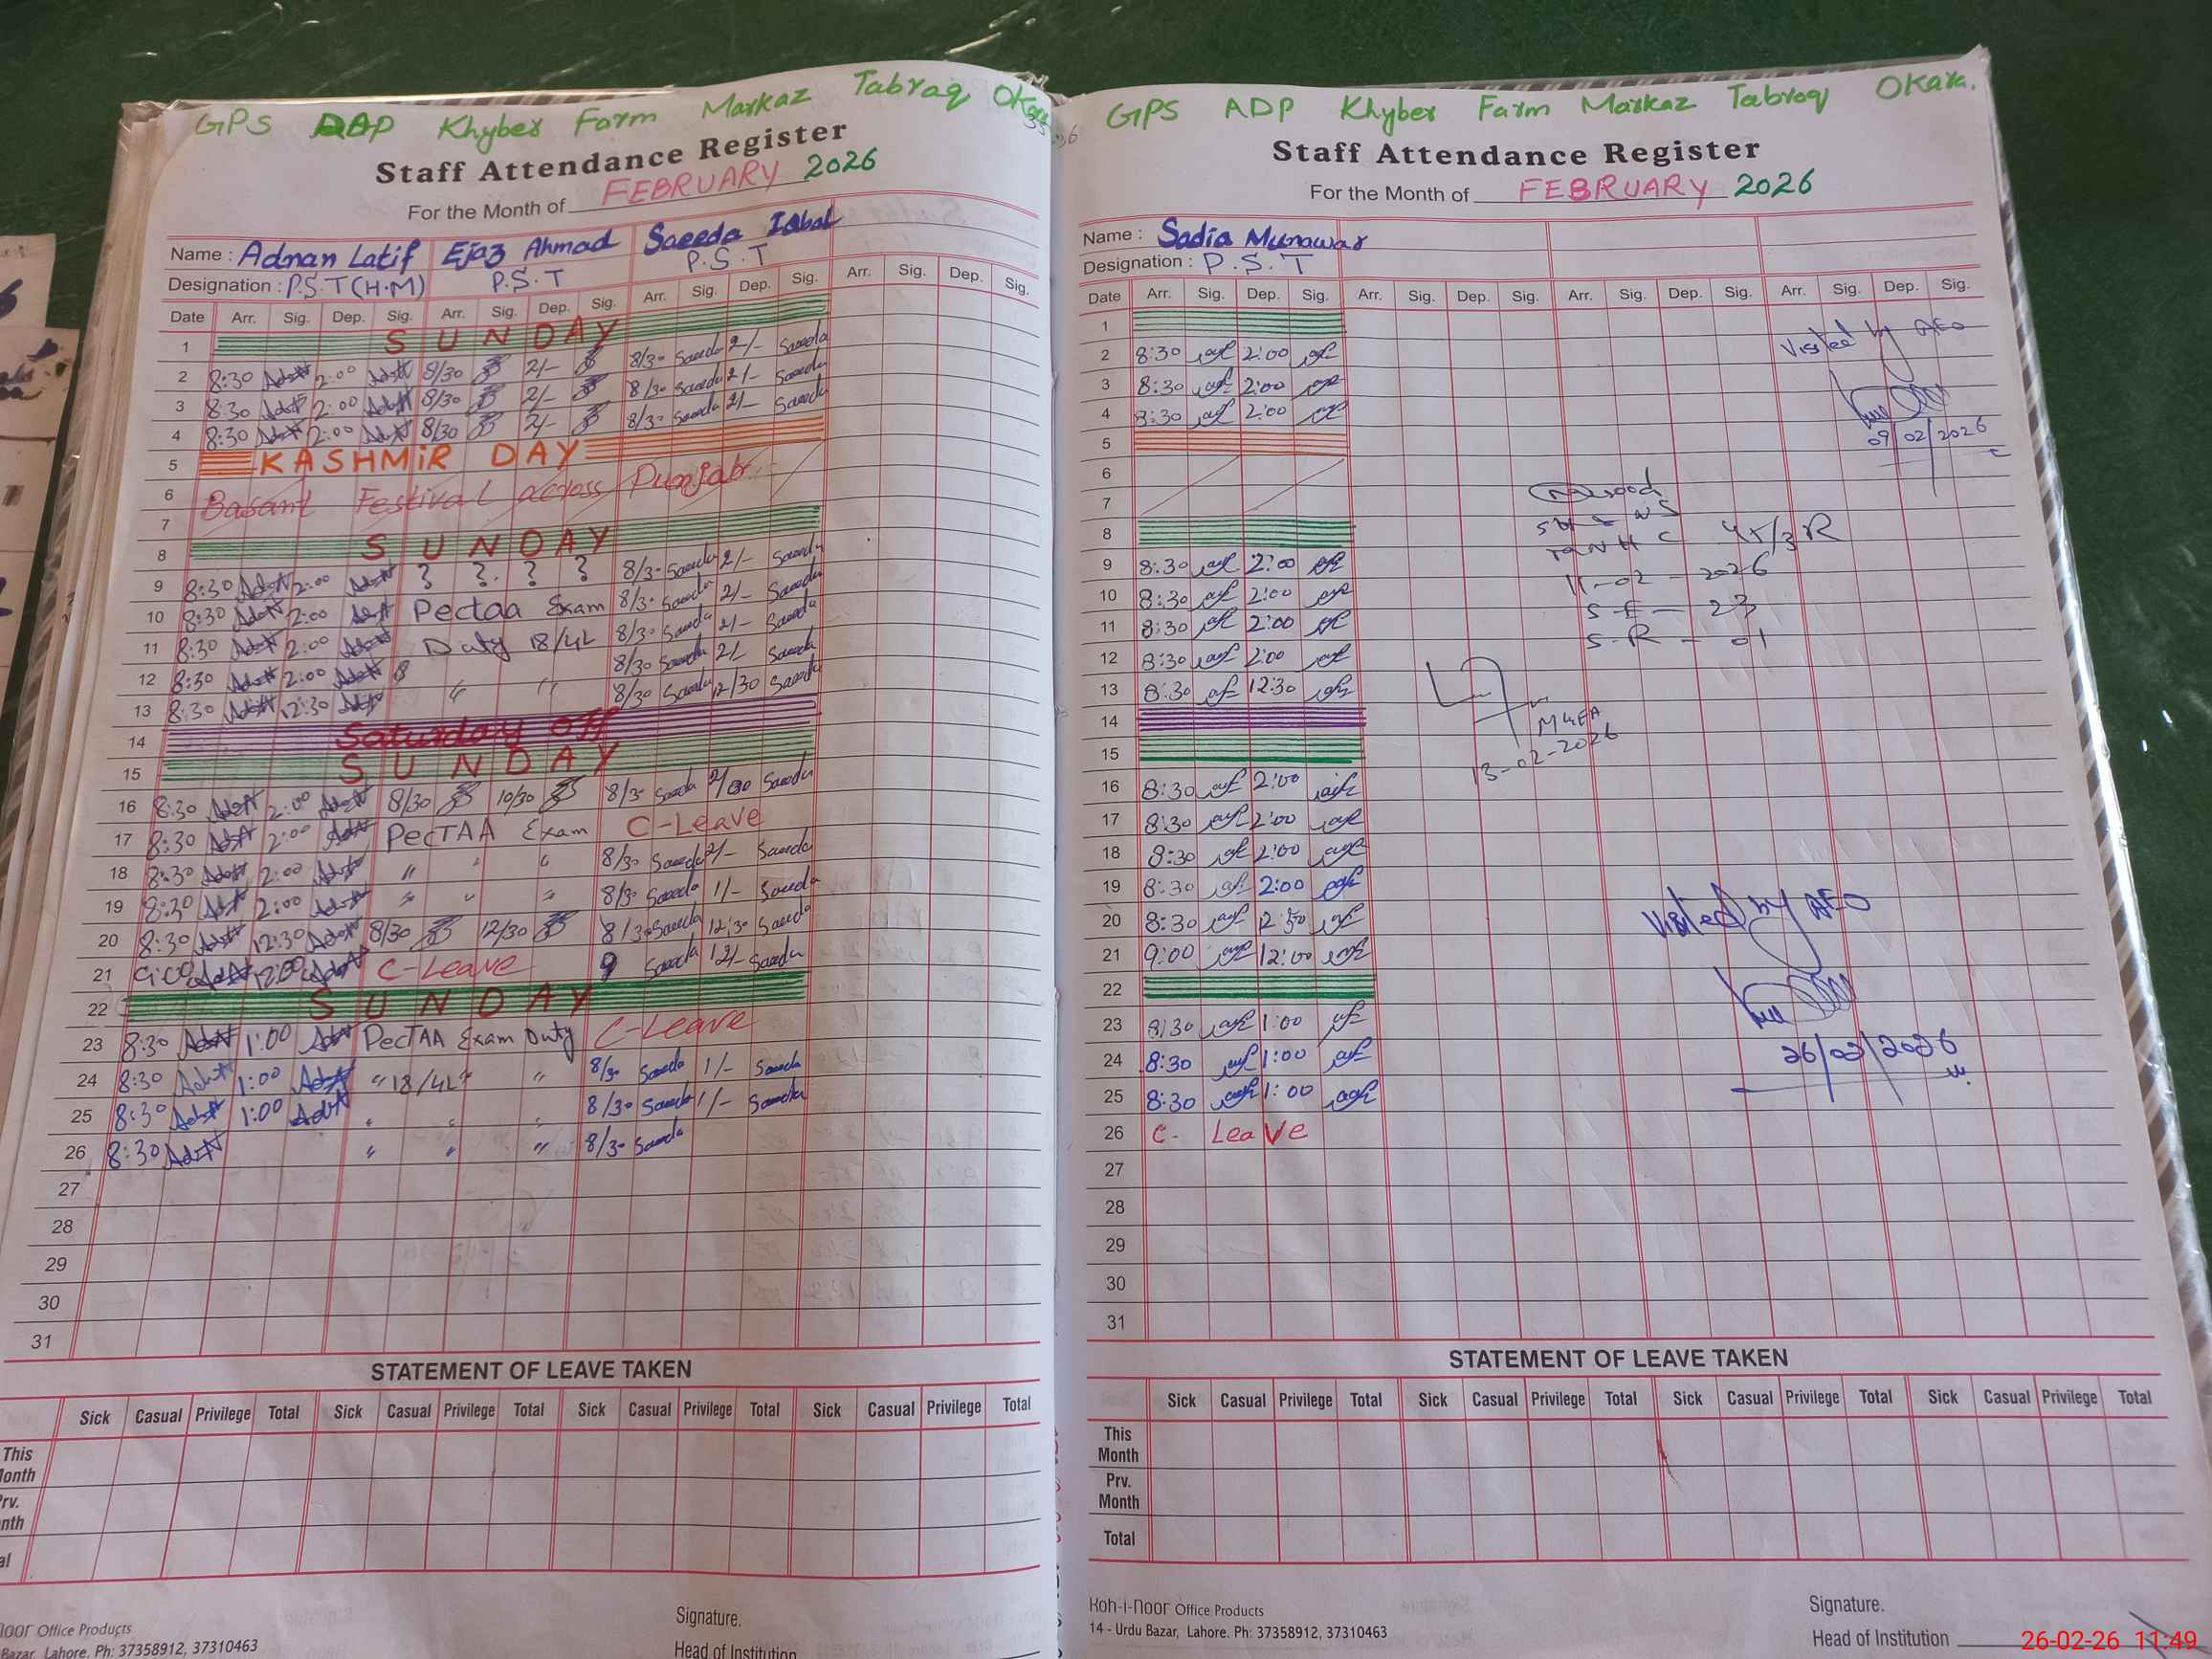 GPS ADP Khyber Farm Markaz Tabraq Okara
Staff Attendance Register
For the Month of FEBRUARY 2026
Name : Adnan Latif Ejaz Ahmad Saeeda Iqbal
Designation : P.S.T (H.M) P.S.T P.S.T
Date Arr. Sig. Dep. Sig. Arr. Sig. Dep. Sig. Arr. Sig. Dep. Sig. Arr. Sig. Dep. Sig.
1 SUNDAY
2 8:30 2:00 8/30 2/- 8/30 Saeeda 2/- Saeeda
3 8:30 2:00 8/30 2/- 8/30 Saeeda 2/- Saeeda
4 8:30 2:00 8/30 2/- 8/30 Saeeda 2/- Saeeda
5 KASHMIR DAY
6 Basant Festival across Punjab
7
8 SUNDAY
9 8:30 2:00 ? ? ? ? 8/30 Saeeda 2/- Saeeda
10 8:30 2:00 Pectaa Exam 8/30 Saeeda 2/- Saeeda
11 8:30 2:00 Duty 18/4L 8/30 Saeeda 2/- Saeeda
12 8:30 2:00 " " 8/30 Saeeda 2/- Saeeda
13 8:30 12:30 8/30 Saeeda 12/30 Saeeda
14 Saturday off
15 SUNDAY
16 8:30 2:00 8/30 10/30 8/30 Saeeda Saeeda
17 8:30 2:00 PecTAA Exam C-Leave
18 8:30 2:00 " " " 8/30 Saeeda 2/- Saeeda
19 8:30 2:00 " " " 8/30 Saeeda 1/- Saeeda
20 8:30 12:30 8/30 12/30 8/30 Saeeda 12:30 Saeeda
21 9:00 12:00 C-Leave 9 Saeeda 12/- Saeeda
22 SUNDAY
23 8:30 1:00 PecTAA Exam Duty C-Leave
24 8:30 1:00 " 18/4L " " 8/30 Saeeda 1/- Saeeda
25 8:30 1:00 " " " 8/30 Saeeda 1/- Saeeda
26 8:30 " " " 8/30 Saeeda
27
28
29
30
31
STATEMENT OF LEAVE TAKEN
Sick Casual Privilege Total Sick Casual Privilege Total Sick Casual Privilege Total Sick Casual Privilege Total
This
onth
Prv.
nth
al
noor Office Products
Bazar, Lahore. Ph: 37358912, 37310463
Signature.
Head of Institution
GPS ADP Khyber Farm Markaz Tabraq Okara.
Staff Attendance Register
For the Month of FEBRUARY 2026
Name : Sadia Munawar
Designation : P.S.T
Date Arr. Sig. Dep. Sig. Arr. Sig. Dep. Sig. Arr. Sig. Dep. Sig. Arr. Sig. Dep. Sig.
1
2 8:30 2:00
3 8:30 2:00
4 8:30 2:00
5
6
7
8
9 8:30 2:00
10 8:30 2:00
11 8:30 2:00
12 8:30 2:00
13 8:30 12:30
14
15
16 8:30 2:00
17 8:30 2:00
18 8:30 2:00
19 8:30 2:00
20 8:30 12:30
21 9:00 12:00
22
23 8:30 1:00
24 8:30 1:00
25 8:30 1:00
26 C- Leave
27
28
29
30
31
Visited by AEO
09/02/2026
45/3R
11-02-2026
S-E - 23
S-R - 01
MEA
13-02-2026
Visited by AEO
26/02/2026
STATEMENT OF LEAVE TAKEN
Sick Casual Privilege Total Sick Casual Privilege Total Sick Casual Privilege Total Sick Casual Privilege Total
This
Month
Prv.
Month
Total
Koh-i-noor Office Products
14 - Urdu Bazar, Lahore. Ph: 37358912, 37310463
Signature.
Head of Institution
26-02-26 11:49